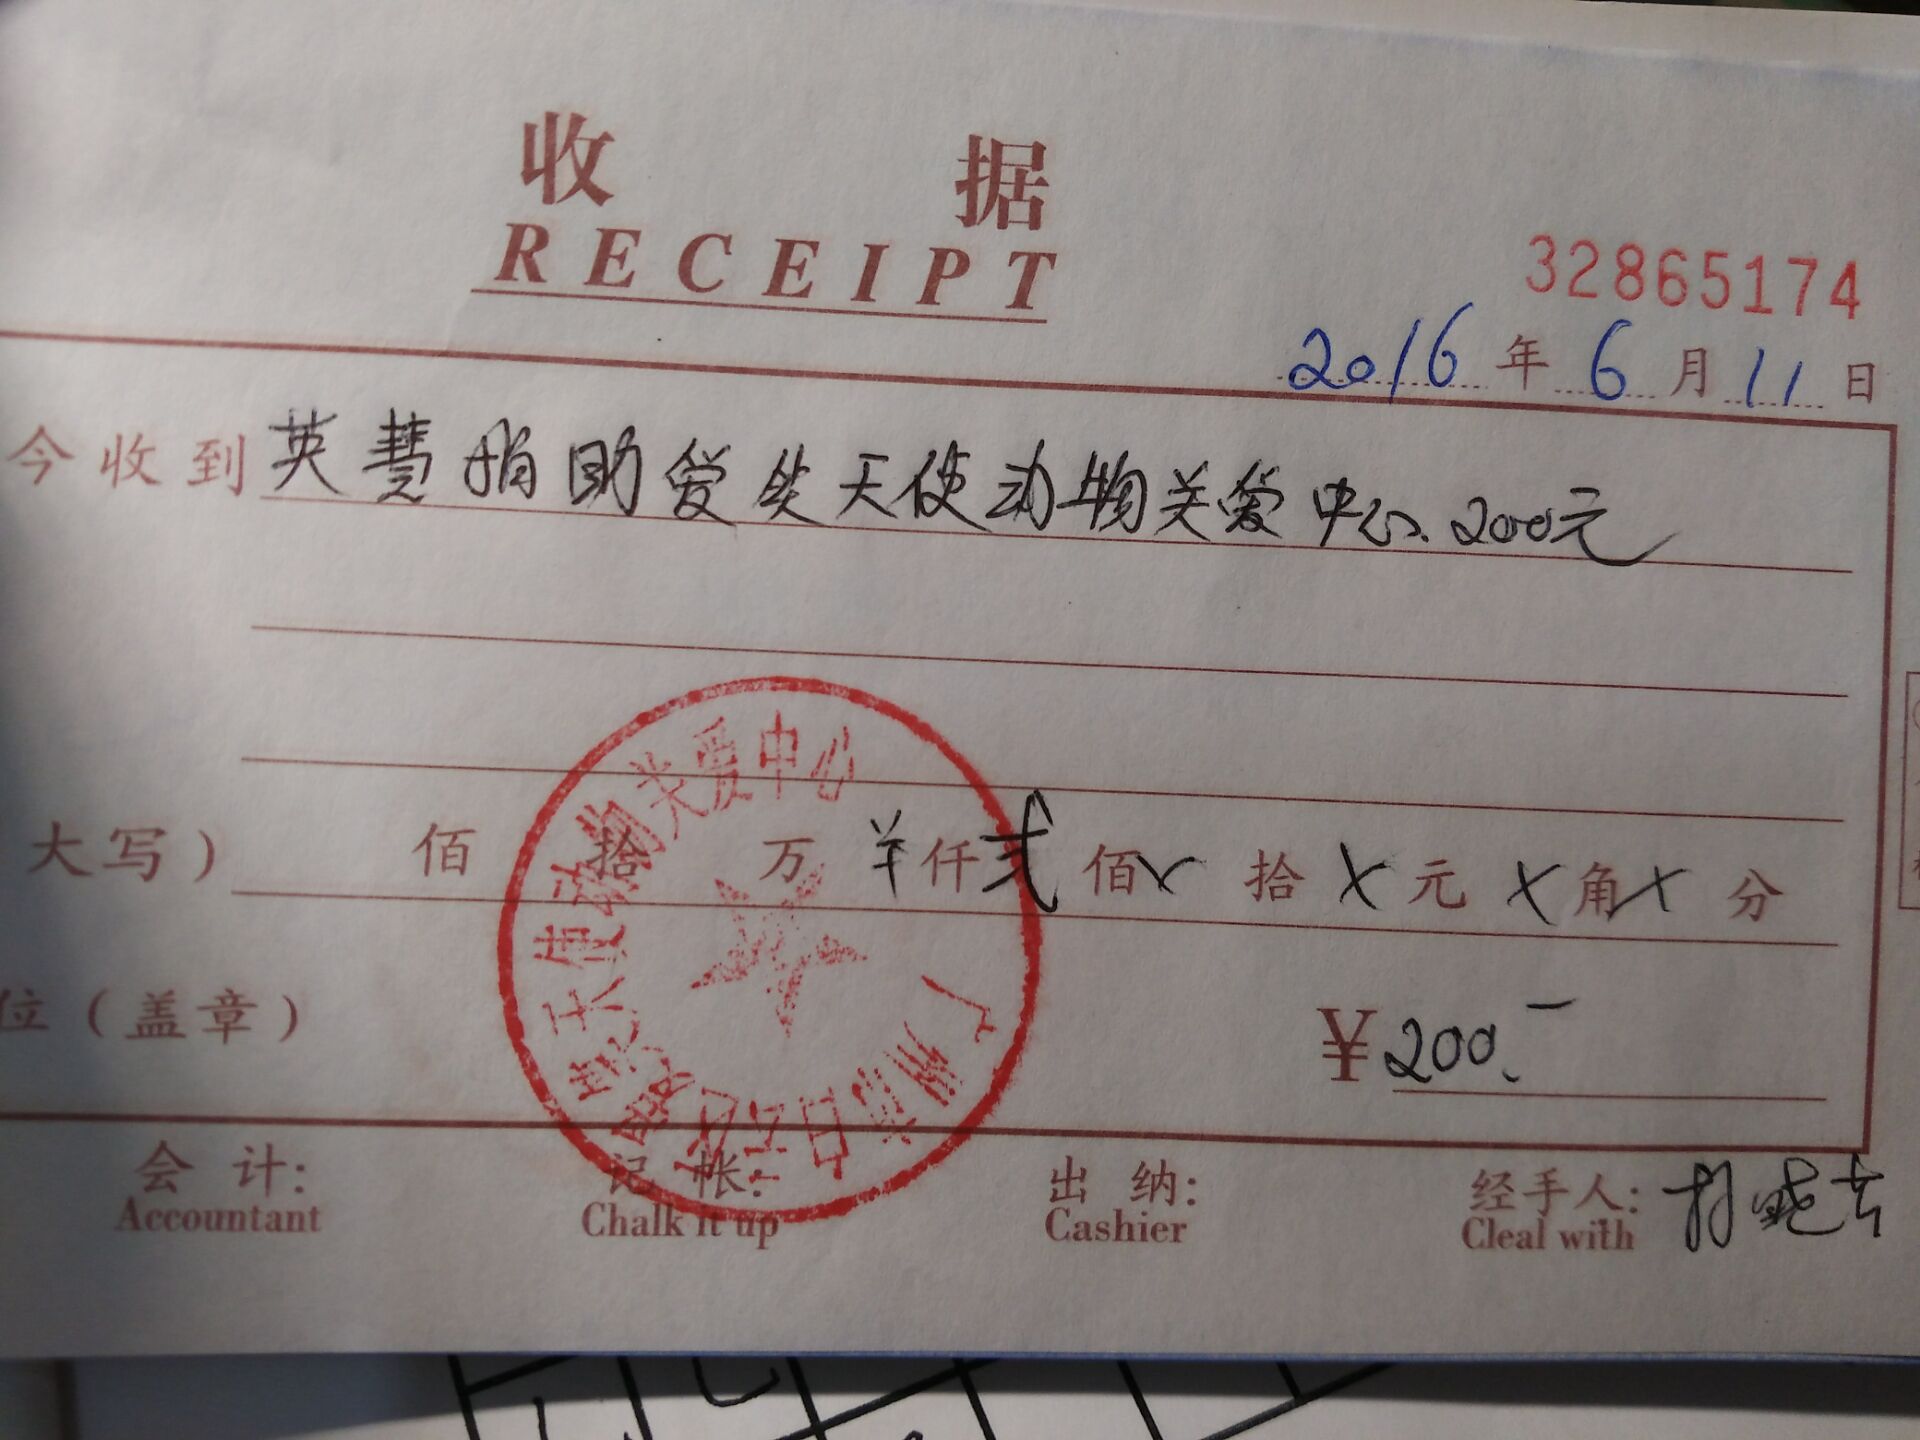 收据
RECEIPT
32865174
2016年6月11日
今收到英慧捐助爱失天使动物关爱中心200元
大写）佰拾万¥仟弍佰X拾X元X角X分
位（盖章）
¥200.-
广州市白云区 天使动物关爱中心
会计: 记帐: 出纳: 经手人:
Accountant Chalk it up Cashier Cleal with